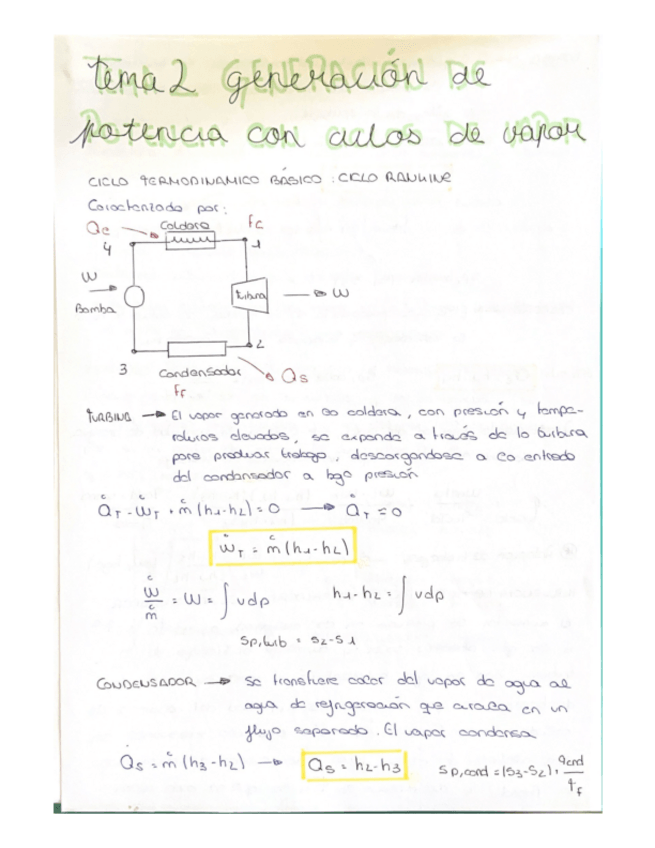 tema 2 generación de
potencia con ciclos de vapor
CICLO TERMODINAMICO BÁSICO : CICLO RANKINE
Caracterizado por:
Qe Caldera Fc
4 1
W
Bomba turbina W
3 2
Condensador Qs
Ff
TURBINA → El vapor generado en la caldera, con presión y tempe-
raturas elevadas, se expande a través de la turbina
para producir trabajo, descargandose a la entrada
del condensador a baja presión
Q̇T - ẆT + ṁ (h1-h2) = 0 → Q̇T = 0
ẆT = ṁ (h1-h2)
Ẇ/ṁ = W = ∫ vdp h1-h2 = ∫ vdp
Sp,turb = S2-S1
CONDENSADOR → Se transfiere calor del vapor de agua al
agua de refrigeración que circula en un
flujo separado. El vapor condensa
Q̇s = ṁ (h3-h2) → Qs = h2-h3 Sp,cond = (S3-S2) + qcnd/Tf